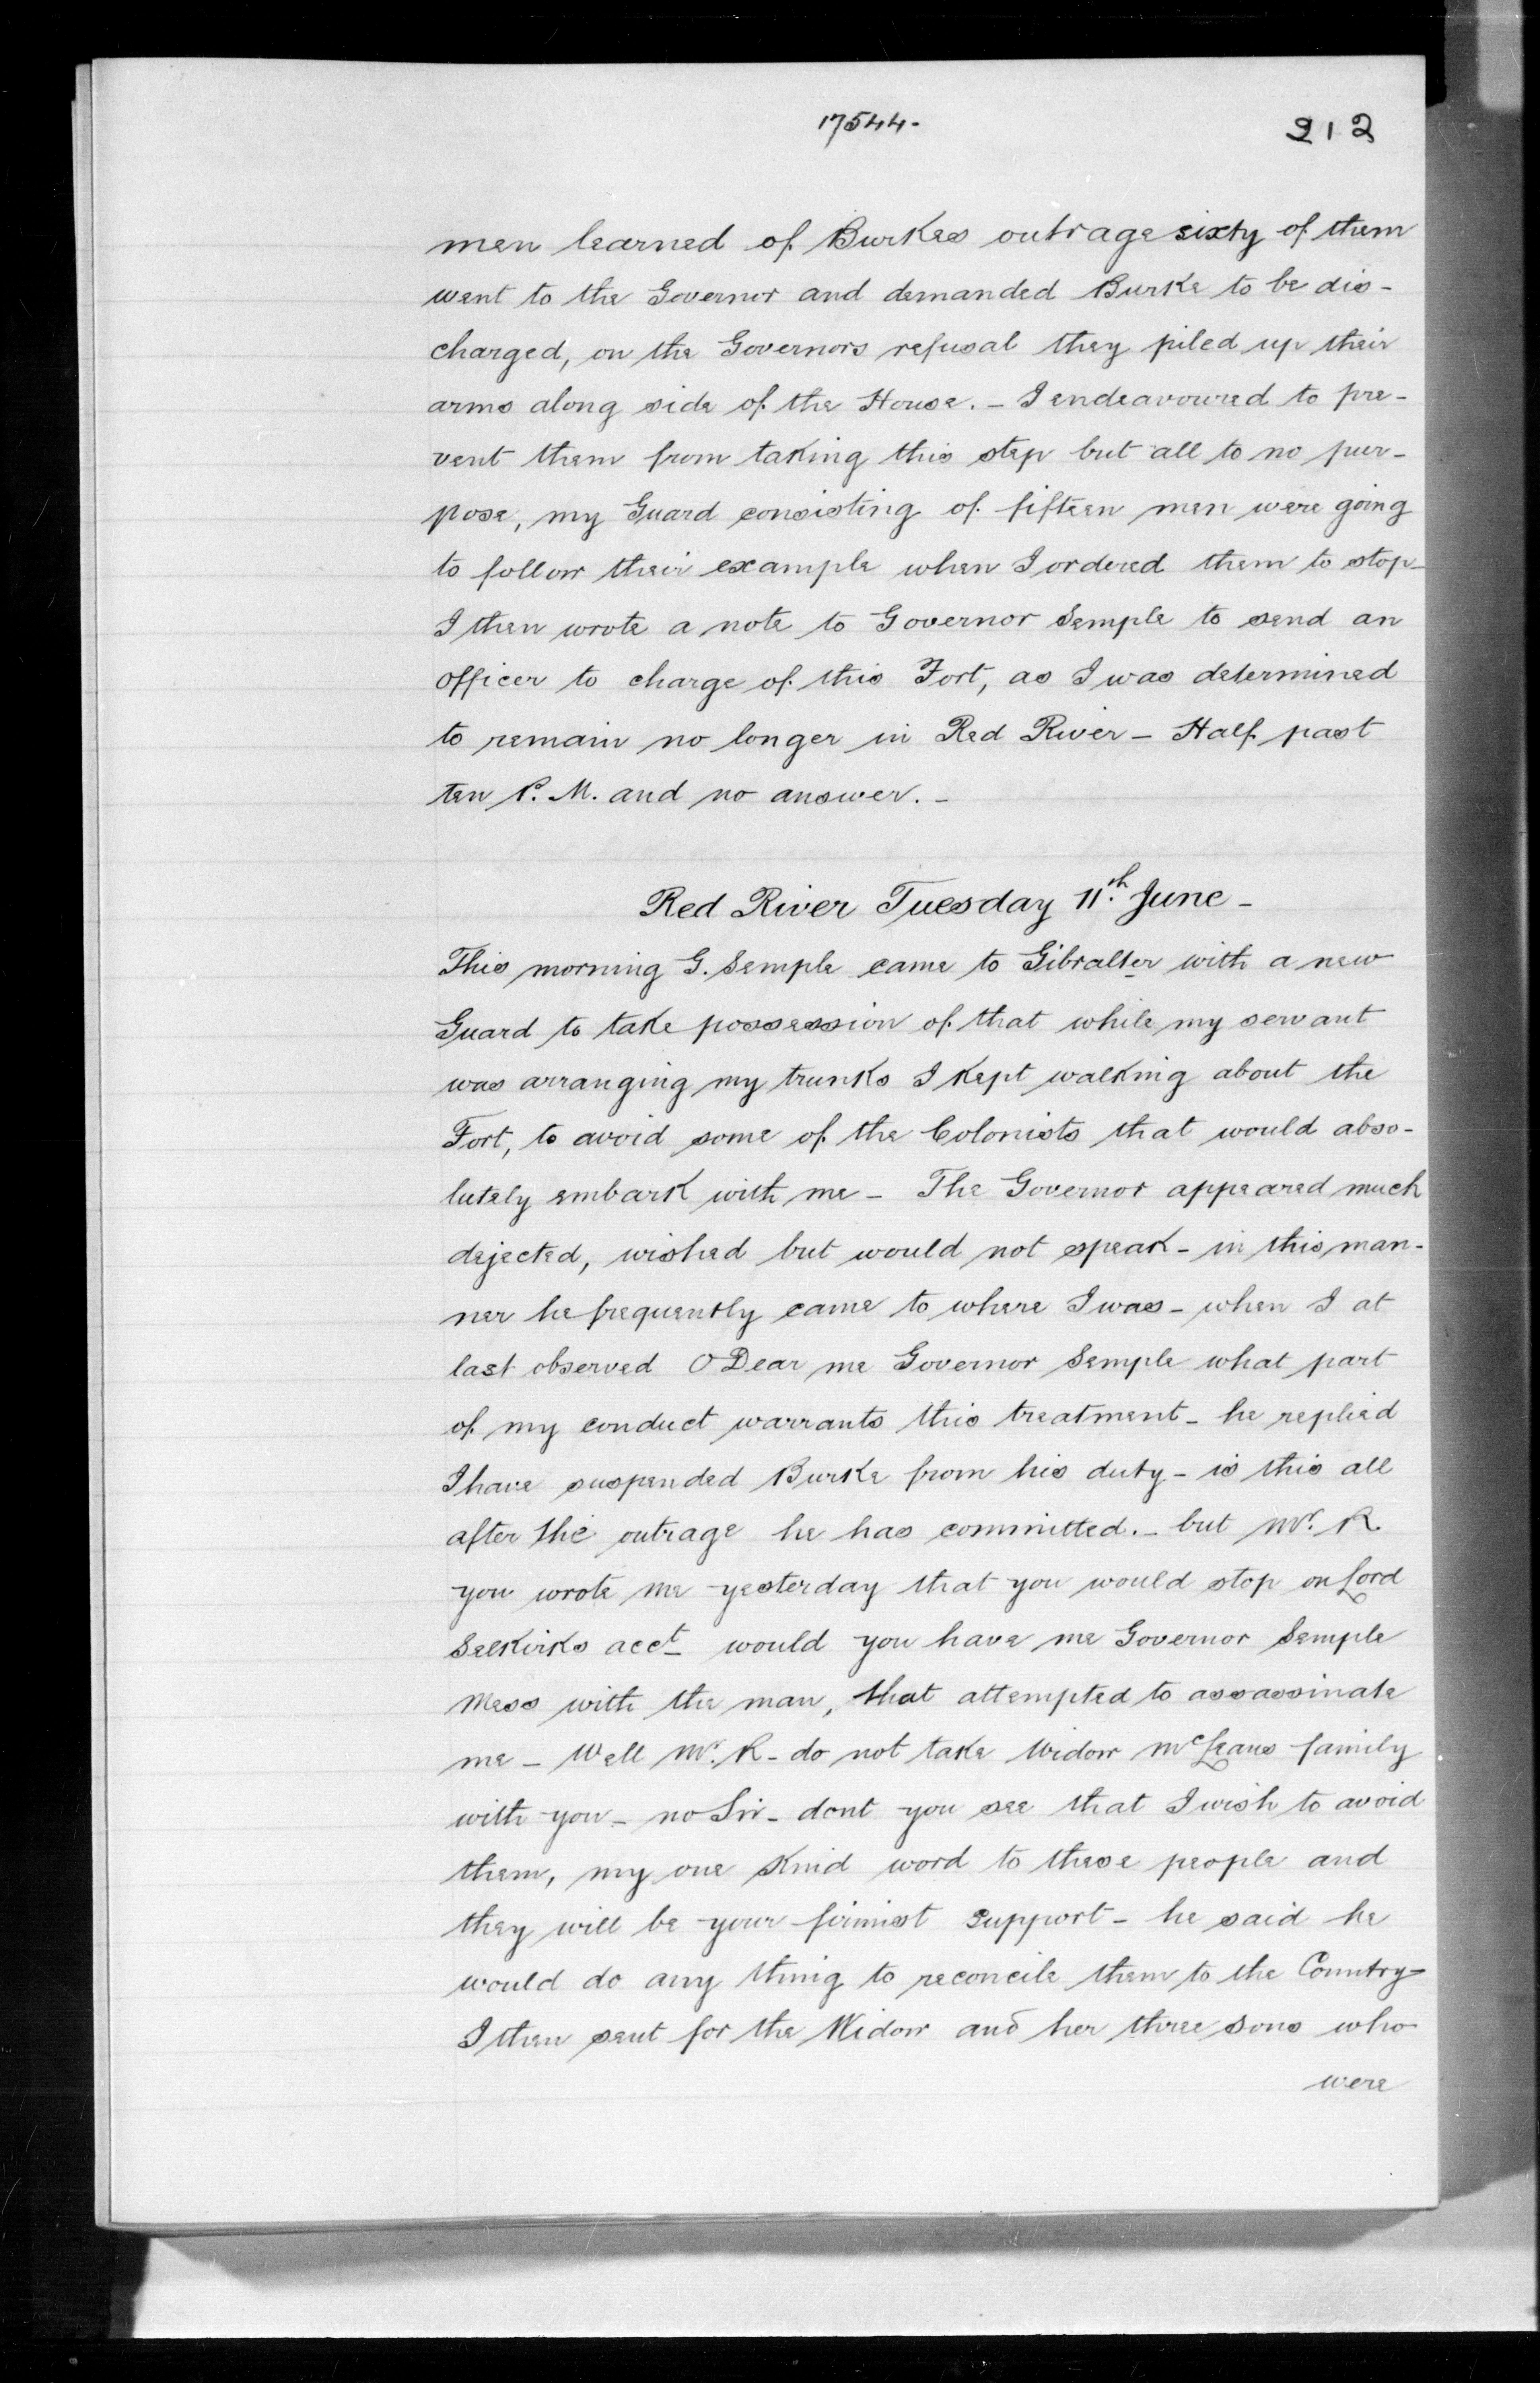 17544-
212
men learned of Burkes outrage sixty of them
went to the Governor and demanded Burke to be dis-
charged, on the Governors refusal they piled up their
arms along side of the House. - I endeavoured to pre-
vent them from taking this step but all to no pur-
pose, my Guard consisting of fifteen men were going
to follow their example when I ordered them to stop -
I then wrote a note to Governor Semple to send an
officer to charge of this Fort, as I was determined
to remain no longer in Red River - Half past
ten P. M. and no answer. -
Red River Tuesday 11.th June -
This morning G. Semple came to Gibralter with a new
Guard to take possession of that while my servant
was arranging my trunks I kept walking about the
Fort, to avoid some of the Colonists that would abso-
lutely embark with me - The Governor appeared much
dejected, wished but would not speak - in this man-
ner he frequently came to where I was - when I at
last observed O Dear me Governor Semple what part
of my conduct warrants this treatment - he replied
I have suspended Burke from his duty - is this all
after the outrage he has committed. - but Mr. R.
you wrote me yesterday that you would stop on Lord
Selkirks acct - would you have me Governor Semple
Mess with the man, that attempted to assassinate
me - Well Mr. R - do not take Widow McLeans family
with you - no Sir - dont you see that I wish to avoid
them, my one kind word to these people and
they will be your firmist support - he said he
would do any thing to reconcile them to the Country -
I then sent for the Widow and her three sons who
were